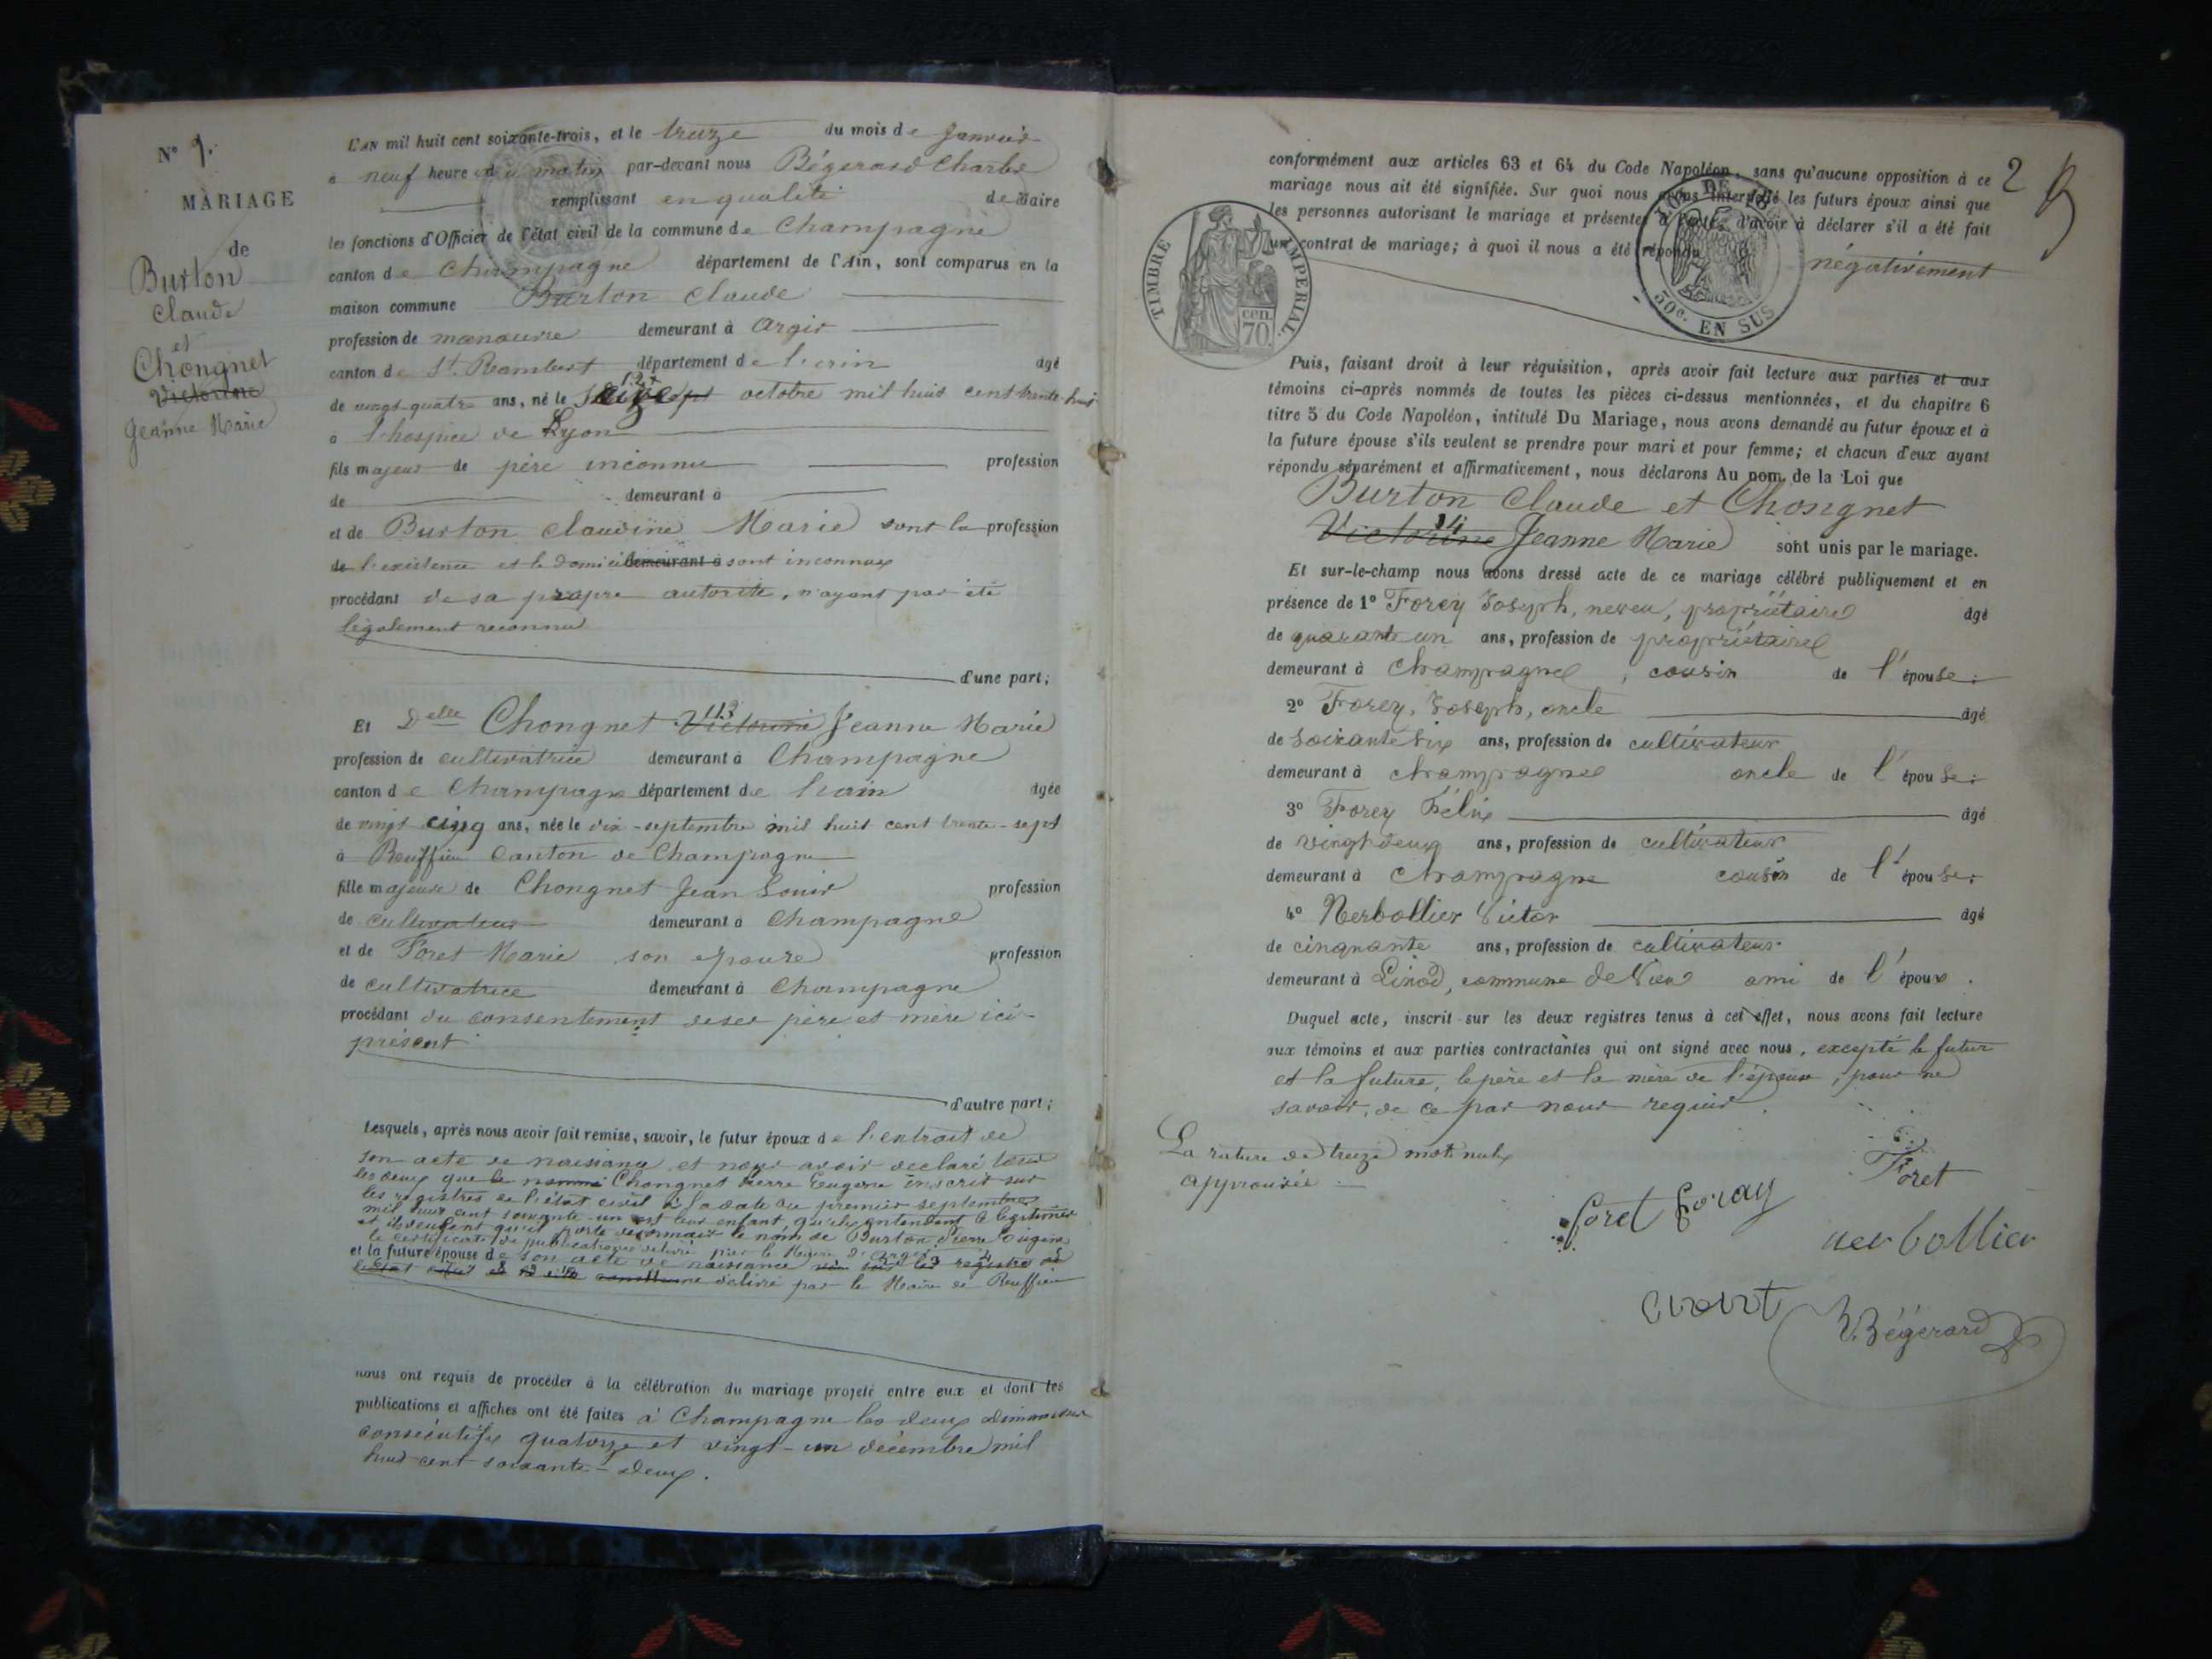 N° 1.
MARIAGE
de
Burton
Claude
et
Chongnet
Victorine
Jeanne Marie
L'AN mil huit cent soixante-trois, et le treize du mois de Janvier
a neuf heure du matin par-devant nous Bégerard Charles
remplissant en qualité de Maire
les fonctions d'Officier de l'état civil de la commune de Champagne
canton de Champagne département de l'Ain, sont comparus en la
maison commune Burton Claude
profession de manœuvre demeurant à Argis
canton de St. Rambert département de l'ain âgé
de vingt-quatre ans, né le seize octobre mil huit cent trente-huit
à l'hospice de Lyon
fils majeur de père inconnu profession
de demeurant à
et de Burton Claudine Marie dont la profession
de l'existence et le domicile demeurant à sont inconnus
procédant de sa propre autorité, n'ayant pas été
légalement reconnu
d'une part;
Et Delle Chongnet Victorine Jeanne Marie
profession de cultivatrice demeurant à Champagne
canton de Champagne département de l'ain âgée
de vingt cinq ans, née le dix-septembre mil huit cent trente-sept
à Ruffieu Canton de Champagne
fille majeure de Chongnet Jean Louis profession
de cultivateur demeurant à Champagne
et de Foret Marie son épouse profession
de cultivatrice demeurant à Champagne
procédant du consentement de ses père et mère ici-
présent
d'autre part;
Lesquels, après nous avoir fait remise, savoir, le futur époux de l'extrait de
son acte de naissance et nous avoir déclaré tous
les deux que le nommé Chongnet Pierre Eugène inscrit sur
les registres de l'état civil à la date du premier septembre
mil huit cent soixante-un est leur enfant, qu'ils entendent le légitimer
et ils veulent qu'il porte désormais le nom de Burton Pierre Eugène
le certificat de publications délivré par le Maire d'Argis
et la future épouse de son acte de naissance registre de
délivré par le Maire de Ruffieu
nous ont requis de procéder à la célébration du mariage projeté entre eux et dont les
publications et affiches ont été faites à Champagne les deux dimanches
consécutifs quatorze et vingt-un décembre mil
huit cent soixante-deux.
2
conformément aux articles 63 et 64 du Code Napoléon, sans qu'aucune opposition à ce
mariage nous ait été signifiée. Sur quoi nous avons interpellé les futurs époux ainsi que
les personnes autorisant le mariage et présentes à l'acte, d'avoir à déclarer s'il a été fait
un contrat de mariage; à quoi il nous a été répondu
négativement
TIMBRE IMPERIAL
cen.
70.
50c. EN SUS
Puis, faisant droit à leur réquisition, après avoir fait lecture aux parties et aux
témoins ci-après nommés de toutes les pièces ci-dessus mentionnées, et du chapitre 6
titre 5 du Code Napoléon, intitulé Du Mariage, nous avons demandé au futur époux et à
la future épouse s'ils veulent se prendre pour mari et pour femme; et chacun d'eux ayant
répondu séparément et affirmativement, nous déclarons Au nom de la Loi que
Burton Claude et Chongnet
Victorine Jeanne Marie sont unis par le mariage.
Et sur-le-champ nous avons dressé acte de ce mariage célébré publiquement et en
présence de 1° Forey Joseph, neveu, propriétaire âgé
de quarante un ans, profession de propriétaire
demeurant à Champagne, cousin de l'épouse;
2° Forey, Joseph, oncle âgé
de soixante six ans, profession de cultivateur
demeurant à Champagne oncle de l'épouse;
3° Forey Félix âgé
de vingt deux ans, profession de cultivateur
demeurant à Champagne cousin de l'épouse;
4° Nerbollier Victor âgé
de cinquante ans, profession de cultivateur
demeurant à Linod, commune de Vieu ami de l'époux.
Duquel acte, inscrit sur les deux registres tenus à cet effet, nous avons fait lecture
aux témoins et aux parties contractantes qui ont signé avec nous, excepté le futur
et la future, le père et la mère de l'épouse, pour ne
savoir, de ce par nous requis.
La rature de treize mots nuls
approuvée
Foret
foret
nerbollier
Bégerard